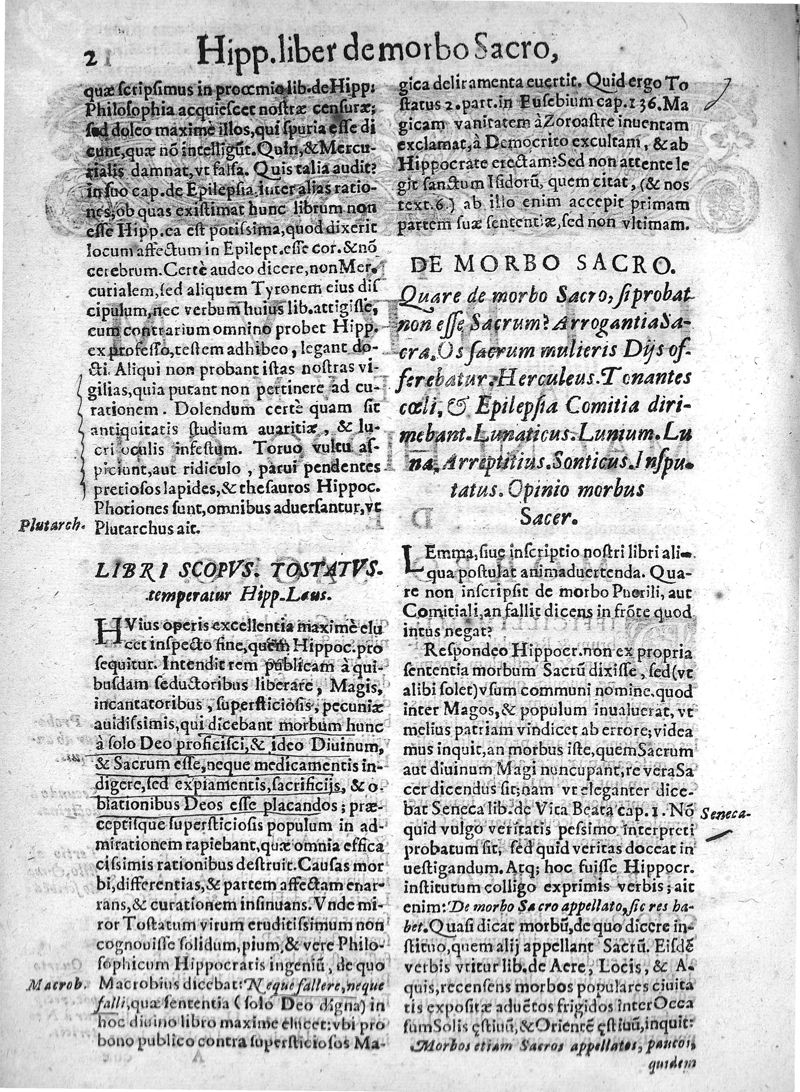 2
Hipp.liber de morbo Sacro,
quæ scripsimus in prooemio lib.de Hipp:
Philosophia acquiescet nostræ censuræ;
sed doleo maximè illos,qui spuria esse di
cunt,quæ nõ intelligũt. Quin,& Mercu-
rialis damnat,vt falsa. Quis talia audit?
in suo cap.de Epilepsia,inter alias ratio-
nes,ob quas existimat hunc librum non
esse Hipp.ea est potissima,quod dixerit
locum affectum in Epilept.esse cor.& nõ
cerebrum. Certè audeo dicere,non Mer-
curialem,sed aliquem Tyronem eius dis
cipulum,nec verbum huius lib.attigisse,
cum contrarium omnino probet Hipp.
ex professo,testem adhibeo, legant do-
cti. Aliqui non probant istas nostras vi-
gilias,quia putant non pertinere ad cu-
rationem. Dolendum certè quam sit
antiquitatis studium auaritiæ, & lu-
cri oculis infestum. Toruo vultu as-
piciunt,aut ridiculo, parui pendentes
pretiosos lapides,& thesauros Hippoc.
Photiones sunt,omnibus aduersantur,vt
Plutarch.
Plutarchus ait.
LIBRI SCOPVS. TOSTATVS.
temperatur Hipp.Laus.
HVius operis excellentia maximè elu
cet inspecto fine,quem Hippoc.pro
sequitur. Intendit rem publicam à qui-
busdam seductoribus liberare, Magis,
incantatoribus, superstitiosis, pecuniæ
auidissimis,qui dicebant morbum hunc
à solo Deo proficisci,& ideo Diuinum,
& Sacrum esse,neque medicamentis in-
digere,sed expiamentis,sacrificijs, & o-
blationibus Deos esse placandos; præ-
ceptisque superstitiosis populum in ad-
mirationem rapiebant,quæ omnia effica
cissimis rationibus destruit. Causas mor
bi,differentias,& partem affectam enar-
rans,& curationem insinuans. Vnde mi-
ror Tostatum virum eruditissimum non
cognouisse solidum,pium,& vere Philo-
sophicum Hippocratis ingeniũ, de quo
Macrob.
Macrobius dicebat: Neque fallere,neque
falli,quæ sententia (solo Deo digna) in
hoc diuino libro maxime elucet:vbi pro
bono publico contra superstitiosos Ma-
gica deliramenta euertit. Quid ergo To
status 2.part.in Eusebium cap.136.Ma
gicam vanitatem à Zoroastre inuentam
exclamat,à Democrito excultam, & ab
Hippocrate erectam? Sed non attente le
git sanctum Isidorũ, quem citat, (& nos
text.6.) ab illo enim accepit primam
partem suæ sententiæ,sed non vltimam.
DE MORBO SACRO.
Quare de morbo Sacro, si probat
non esse Sacrum? Arrogantia Sa-
cra. Os sacrum mulieris Dijs of-
ferebatur. Herculeus. Tonantes
cœli, & Epilepsia Comitia diri-
mebant. Lunaticus. Lunium. Lu
na. Arreptitius. Sonticus. Inspu-
tatus. Opinio morbus
Sacer.
LEmma, siue inscriptio nostri libri ali-
qua postulat animaduertenda. Qua-
re non inscripsit de morbo Puerili, aut
Comitiali,an fallit dicens in frõte quod
intus negat?
Respondeo Hippocr.non ex propria
sententia morbum Sacrũ dixisse, sed(vt
alibi solet)vsum communi nomine,quod
inter Magos,& populum inualuerat, vt
melius patriam vindicet ab errore; videa
mus inquit,an morbus iste,quem Sacrum
aut diuinum Magi nuncupant,re vera Sa
cer dicendus sit;nam vt eleganter dice-
bat Seneca lib.de Vita Beata cap.1. Nõ
Seneca-
quid vulgo veritatis pessimo interpreti
probatum sit, sed quid veritas doceat in
uestigandum. Atq; hoc fuisse Hippocr.
institutum colligo exprimis verbis; ait
enim: De morbo Sacro appellato,sic res ha-
bet. Quasi dicat morbũ,de quo dicere in-
stituo,quem alij appellant Sacrũ. Eisdẽ
verbis vtitur lib.de Aere, Locis, & A-
quis,recensens morbos populares ciuita
tis expositæ aduẽtos frigidos inter Occa
sum Solis ęstiuũ, & Orientẽ ęstiuũ, inquit:
Morbos etiam Sacros appellatos, paucos,
quidem